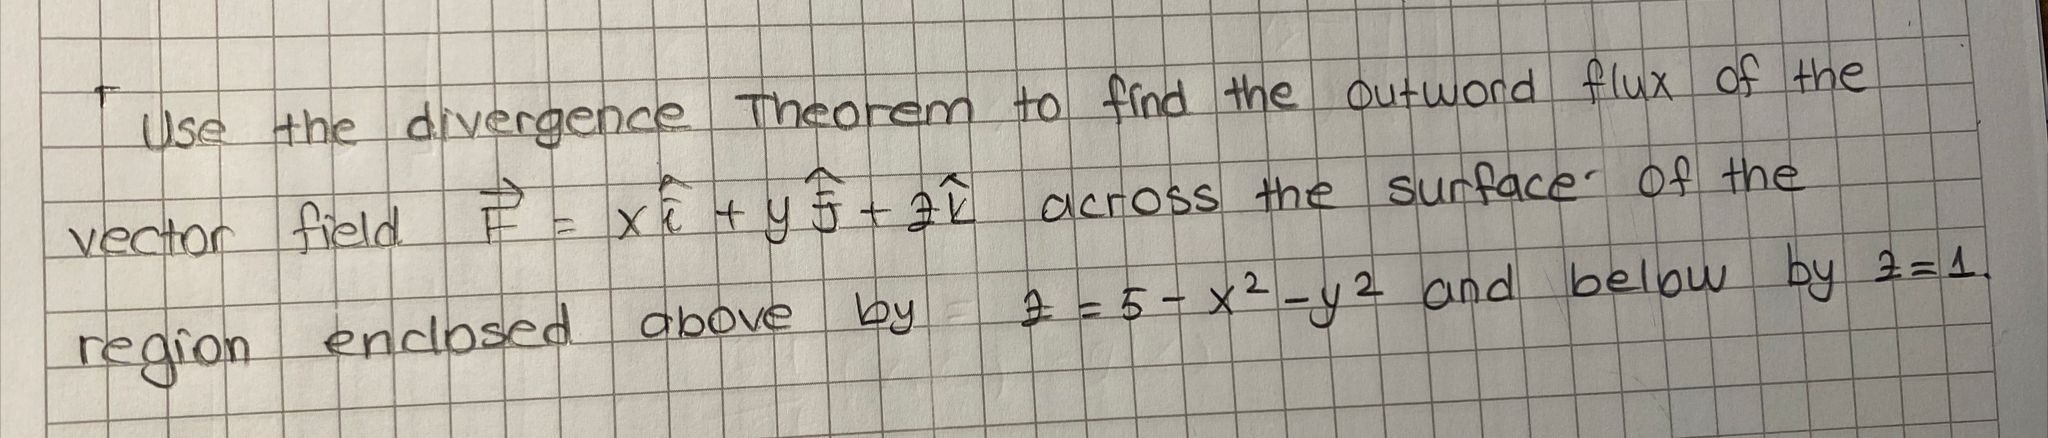 Use the divergence Theorem to find the outword flux of the
vector field F⃗ = xî + yĵ + zk̂ across the surface of the
region enclosed above by z = 5 - x² - y² and below by z = 1.